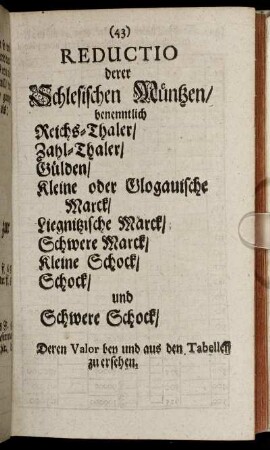 (43)
REDUCTIO
derer
Schlesischen Müntzen/
benenntlich
Reichs-Thaler/
Zahl-Thaler/
Gülden/
Kleine oder Glogauische
Marck/
Liegnitzische Marck/
Schwere Marck/
Kleine Schock/
Schock/
und
Schwere Schock/
Deren Valor bey und aus den Tabellen
zu ersehen.